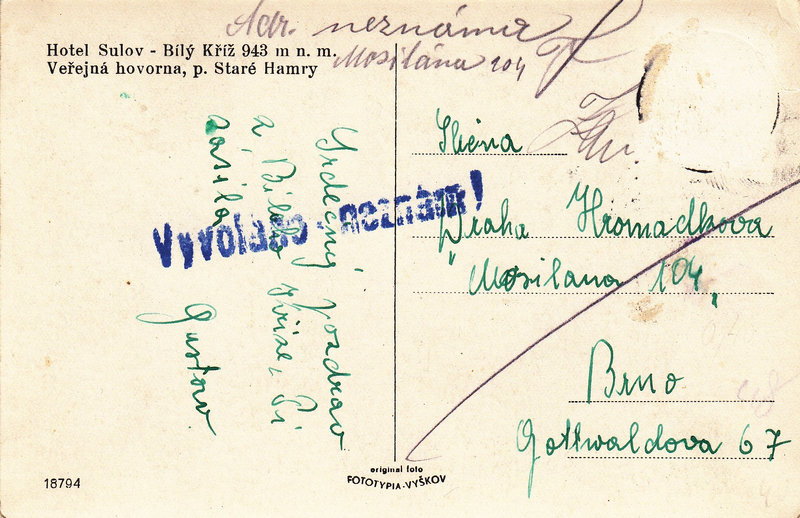 Adr. neznámá
Mosilána 104
Hotel Sulov - Bílý Kříž 943 m n. m.
Veřejná hovorna, p. Staré Hamry
Srdečný pozdrav
z Bílého Kříže, Ti
zasílá
Gustav
Vyvoláno - neznám!
Draha Hromadkova
"Mosilana 104"
Brno
Gottwaldova 67
original foto
FOTOTYPIA-VYŠKOV
18794